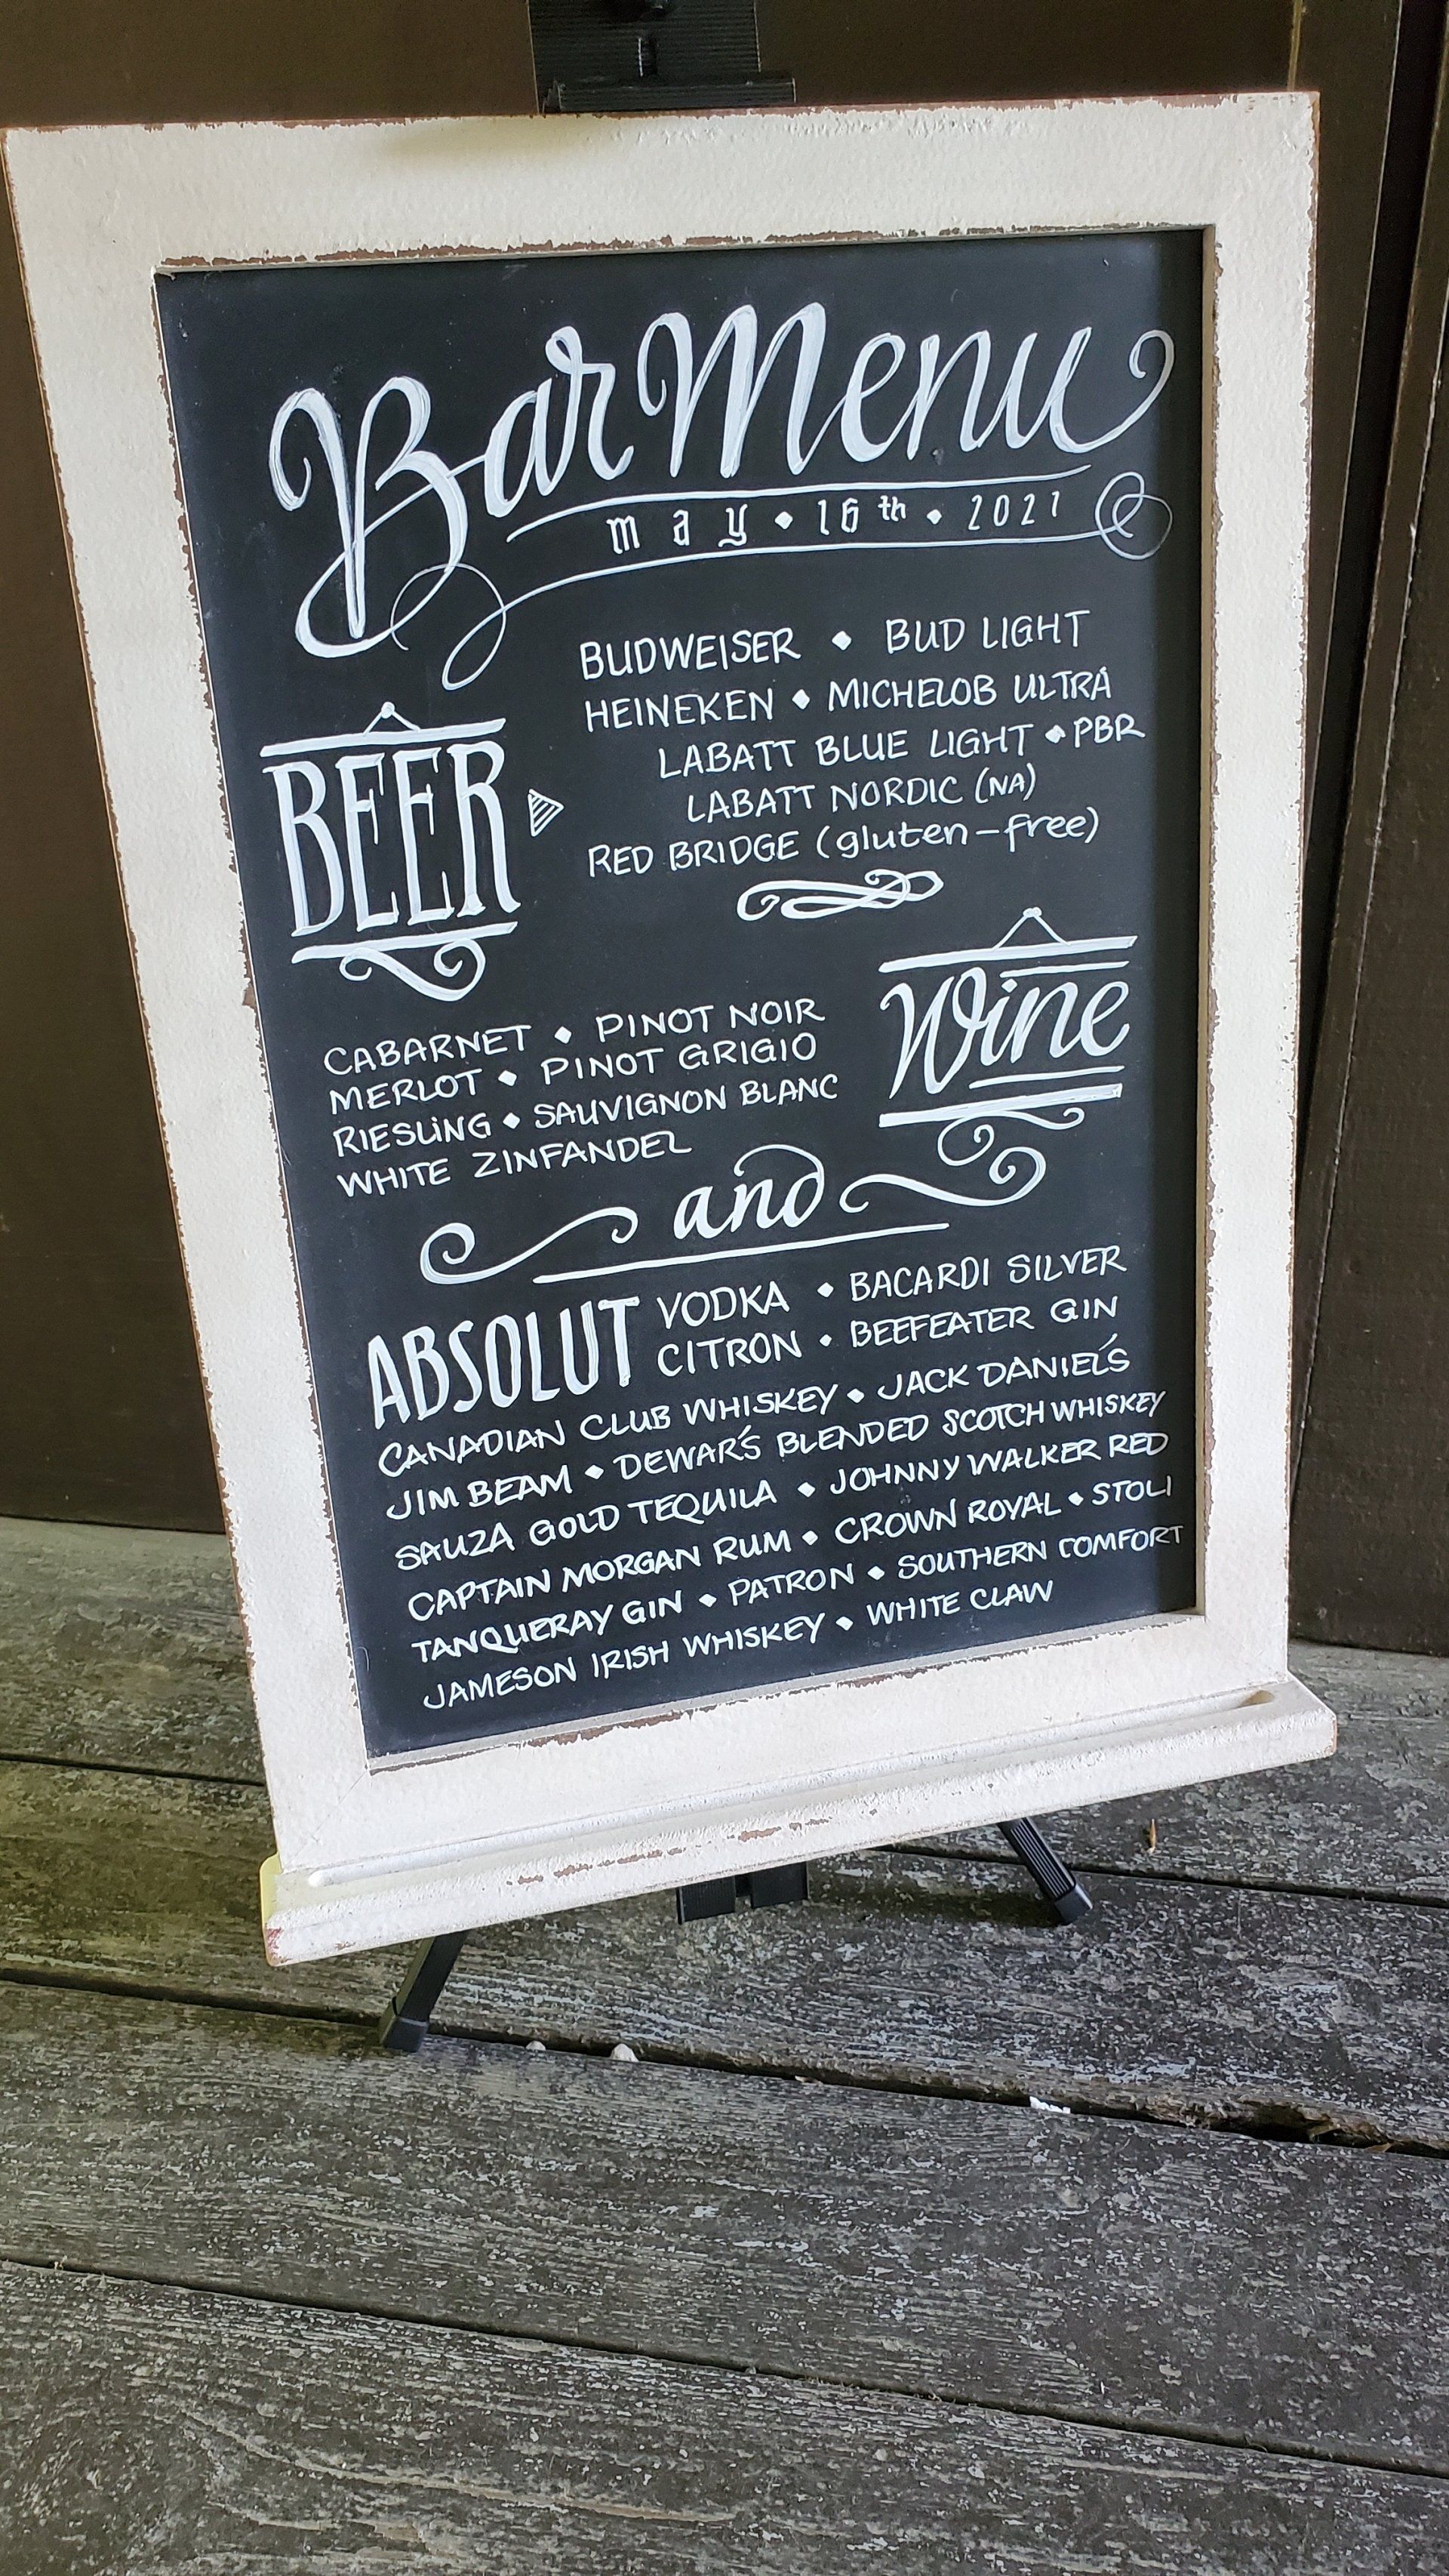 Bar Menu
may • 16th • 2021
BUDWEISER • BUD LIGHT
HEINEKEN • MICHELOB ULTRA
LABATT BLUE LIGHT • PBR
LABATT NORDIC (NA)
RED BRIDGE (gluten-free)
BEER
Wine
CABARNET • PINOT NOIR
MERLOT • PINOT GRIGIO
RIESLING • SAUVIGNON BLANC
WHITE ZINFANDEL
and
ABSOLUT VODKA • BACARDI SILVER
CITRON • BEEFEATER GIN
CANADIAN CLUB WHISKEY • JACK DANIEL'S
JIM BEAM • DEWAR'S BLENDED SCOTCH WHISKEY
SAUZA GOLD TEQUILA • JOHNNY WALKER RED
CAPTAIN MORGAN RUM • CROWN ROYAL • STOLI
TANQUERAY GIN • PATRON • SOUTHERN COMFORT
JAMESON IRISH WHISKEY • WHITE CLAW